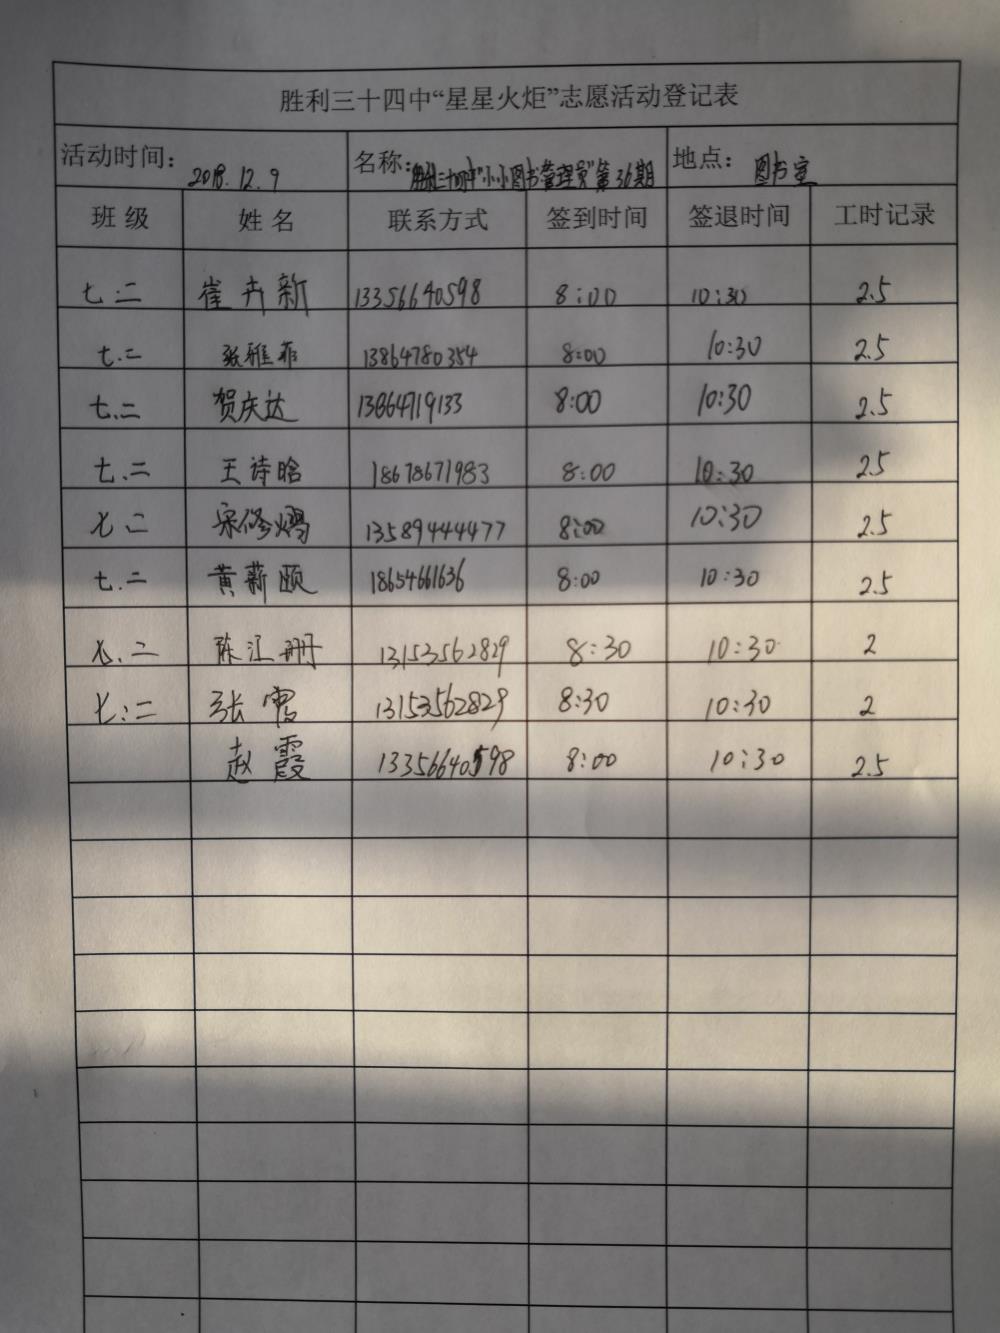 胜利三十四中“星星火炬”志愿活动登记表
活动时间: 2018.12.9 名称: 胜利三十四中“小小图书管理员”第36期 地点: 图书室
班级 姓名 联系方式 签到时间 签退时间 工时记录
七.二 崔卉新 13356640598 8:00 10:30 2.5
七.二 张雅菲 13864780354 8:00 10:30 2.5
七.二 贺庆达 13864719133 8:00 10:30 2.5
七.二 王诗晗 18678671983 8:00 10:30 2.5
七.二 宋修熠 13589444477 8:00 10:30 2.5
七.二 黄薪颐 18654661636 8:00 10:30 2.5
七.二 陈江珊 13153562829 8:30 10:30 2
七.二 张 13153562829 8:30 10:30 2
赵霞 13356640598 8:00 10:30 2.5